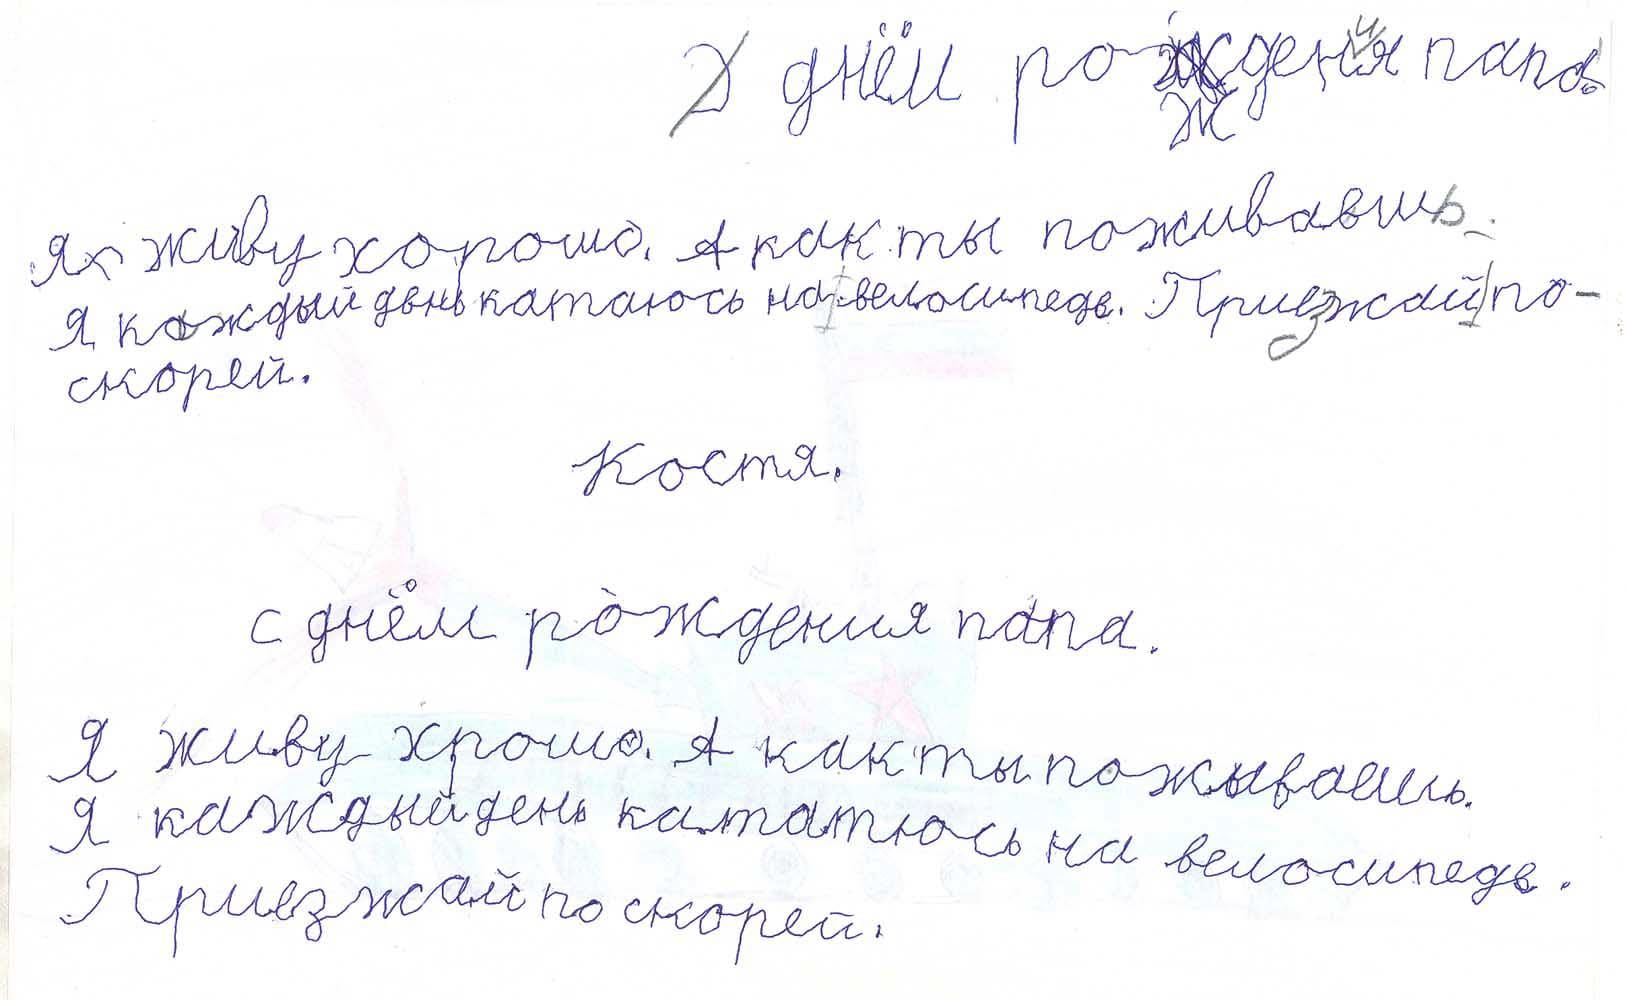 С днём рождения папа.
Ж
Я живу хорошо. А как ты поживавшь.
Я каждый день катаюсь на велосипеде. Приезжай по-
скорей.
Костя.
с днём рождения папа.
Я живу хрошо. А как ты пожываешь.
Я каждый день кататюсь на велосипеде.
Приезжай поскорей.